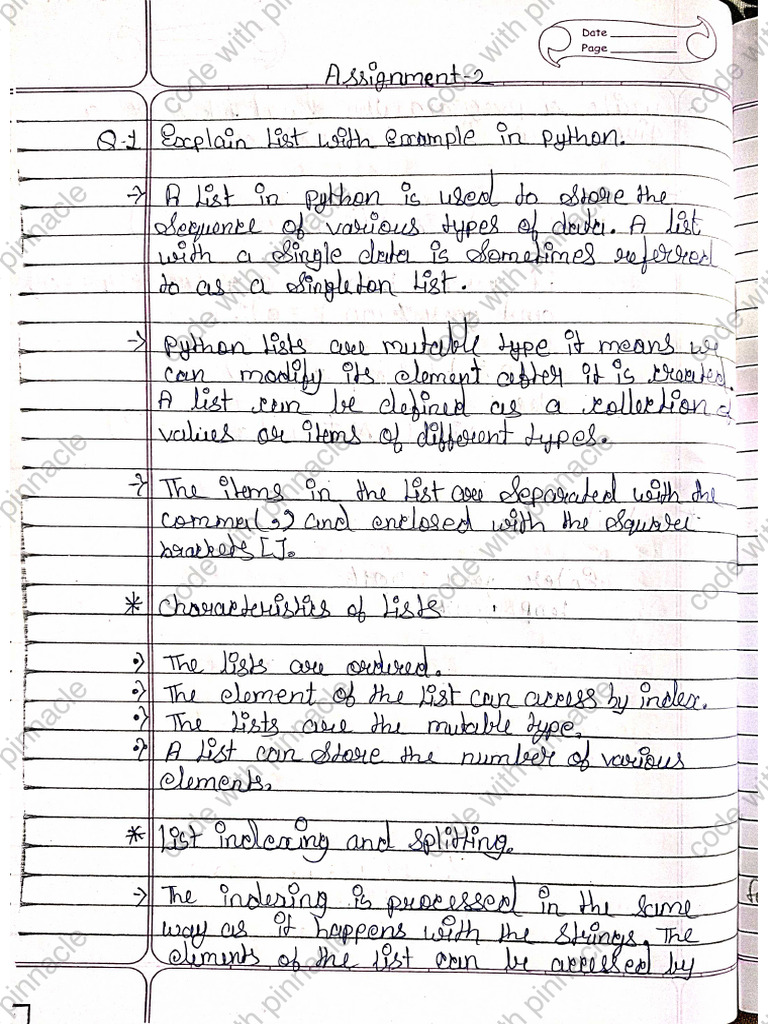 Date
Page
Assignment-2
Q-1 Explain List with example in python.
→ A List in python is used to store the
sequence of various types of data. A list
with a single data is sometimes referred
to as a singleton list.
→ python lists are mutable type it means we
can modify its element after it is created.
A list can be defined as a collection of
values or items of different types.
→ The items in the List are separated with the
comma(,) and enclosed with the square
brackets [].
* Characteristics of Lists
•) The lists are ordered.
•) The element of the List can access by index.
•) The Lists are the mutable type.
•) A List can store the number of various
elements.
* List indexing and splitting.
→ The indexing is processed in the same
way as it happens with the strings. The
elements of the list can be accessed by
code with pinnacle